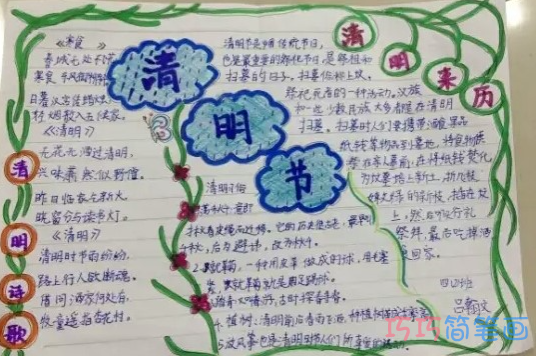 《寒食》
春城无处不飞
寒食东风御柳斜
日暮汉宫传蜡烛
轻烟散入五侯家。
《清明》
无花无酒过清明，
兴味萧然似野僧。
昨日邻家乞新火，
晓窗分与读书灯。
《清明》
清明时节雨纷纷，
路上行人欲断魂。
借问酒家何处有，
牧童遥指杏花村。
清
明
诗
歌
清
明
节
清
明
来
历
清明节是传统节日，
也是最重要的祭祀节日，是祭祖和
扫墓的日子。扫墓俗称上坟，
祭祀死者的一种活动。汉族
和一些少数民族大多都是在清明
扫墓。扫墓时人们要携带酒食果品
纸钱等物品到墓地，将食物供
祭在亲人墓前，在将纸钱焚化
为坟墓培上新土，折几枝
嫩绿的新枝，插在坟
上，然后叩头行礼
祭拜，最后吃掉酒
食回家。
四
班
吕
文
清明习俗
1.荡秋千：
秋千，后为避讳，改为秋千。
2.蹴鞠，一种用皮革做成的球，用毛塞
紧，蹴鞠就是用足踢球。
踏青：又叫春游，古时探春寻春。
4.植树：清明前后春
5.放风筝也是清明时节人们所喜爱的活动。
巧巧简笔画